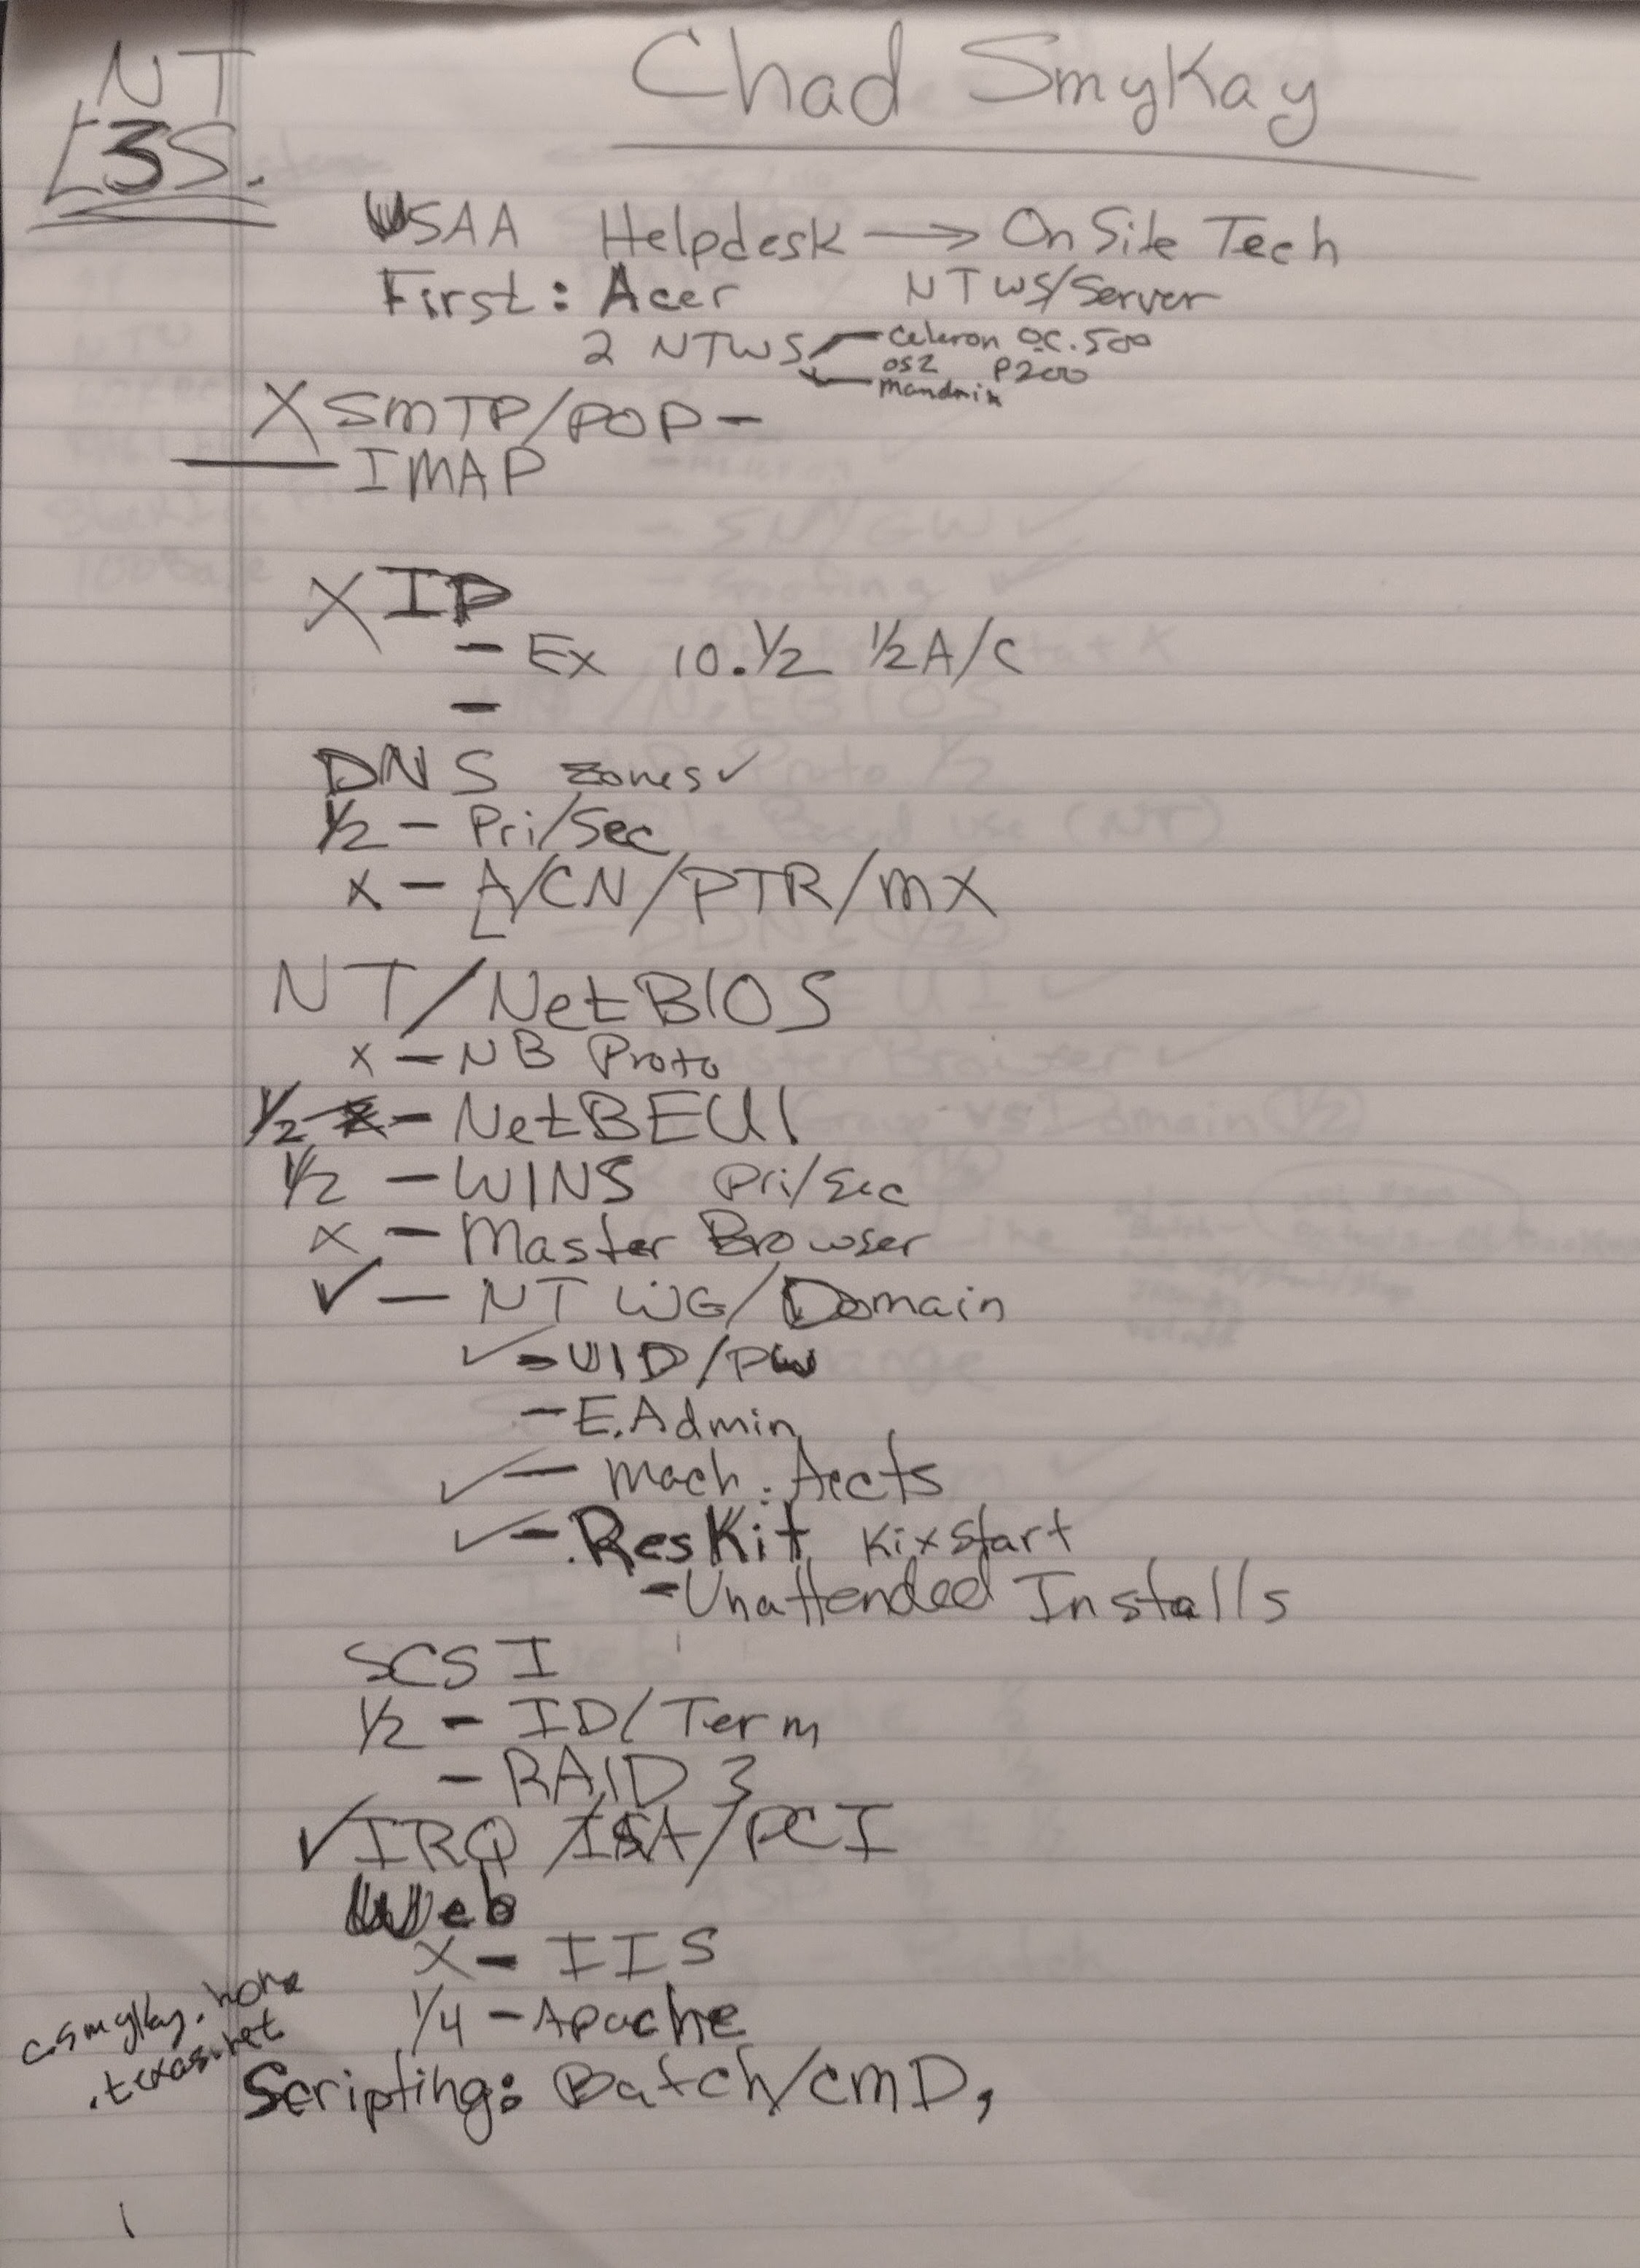 NT
L3S.
Chad SmyKay
USAA Helpdesk → On Site Tech
First: Acer NT WS/Server
2 NTWS Celeron OC.500
OS2 P200
Mandrix
X SMTP/POP -
IMAP
X IP
- Ex 10.1/2 1/2A/C
-
DNS zones ✓
1/2 - Pri/Sec
x - A/CN/PTR/MX
NT/NetBIOS
x - NB Proto
1/2 - NetBEUI
1/2 - WINS Pri/Sec
x - Master Browser
✓ - NT WG/Domain
✓ - UID/PW
- E.Admin
✓ - Mach. Accts
✓ - ResKit KixStart
- Unattended Installs
SCSI
1/2 - ID/Term
- RAID 3
✓ IRQ/ISA/PCI
Web
X - IIS
1/4 - Apache
csmykay.home
.texas.net
Scripting: Batch/CMD,